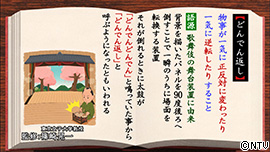 【どんでん返し】
物事が一気に正反対に変わったり
一気に逆転したりすること
語源 歌舞伎の舞台装置に由来
背景を描いたパネルを90度後ろへ
倒すことで一瞬のうちに場面を
転換する装置
それが倒れるときに太鼓が
「どんでんどんでん」と鳴っていた事から
「どんでん返し」と
呼ぶようになったともいわれる
©NTV